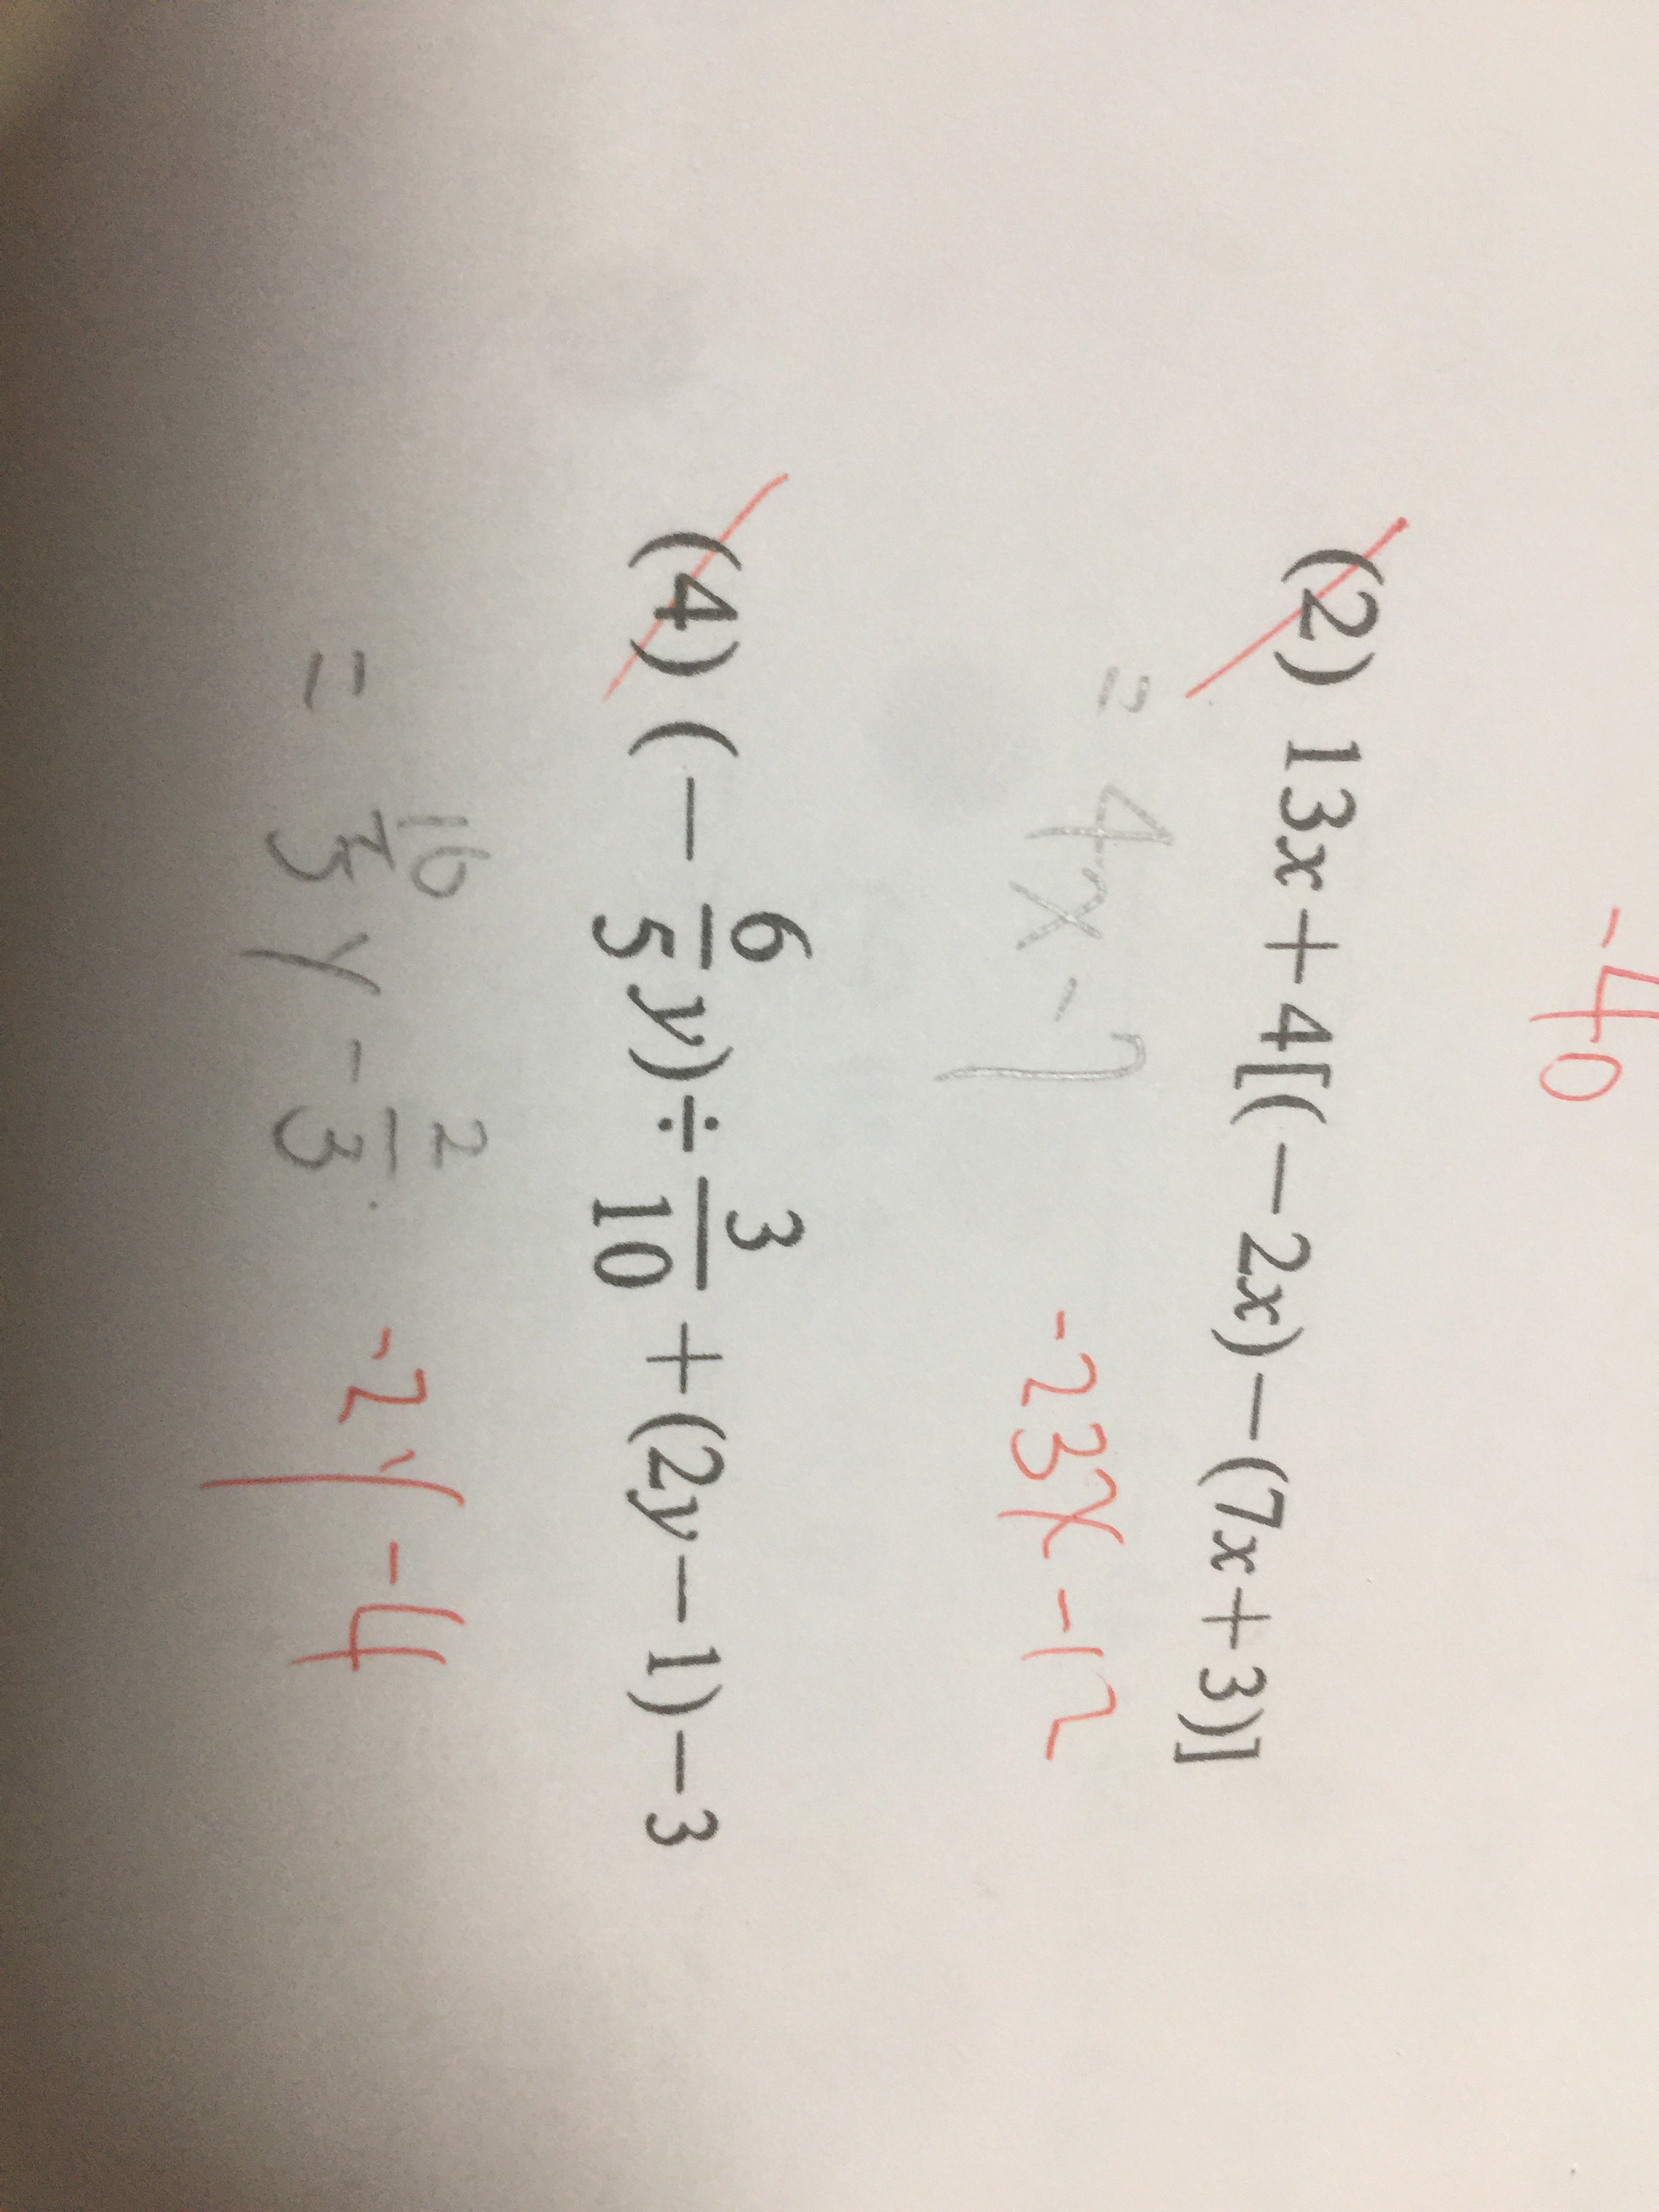 -40
(2) 13x+4[(-2x)-(7x+3)]
= 4x-7 -23x-12
(4) (-6/5 y)÷3/10+(2y-1)-3
= 16/5 y - 2/3 -2y-4